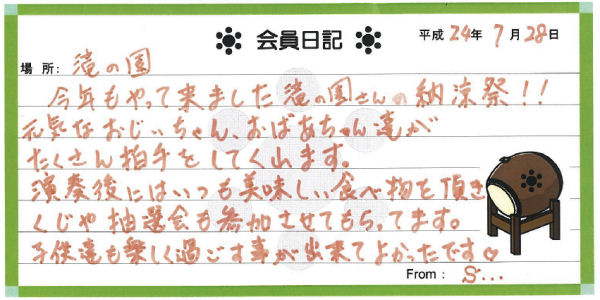 会員日記
平成24年7月28日
場所:滝の園
今年もやって来ました滝の園さんの納涼祭!!
元気なおじぃちゃん、おばあちゃん達が
たくさん拍手をしてくれます。
演奏後にはいつも美味しい食べ物を頂き
くじや抽選会も参加させてもらってます。
子供達も楽しく過ごす事が出来てよかったです♡
From: S...